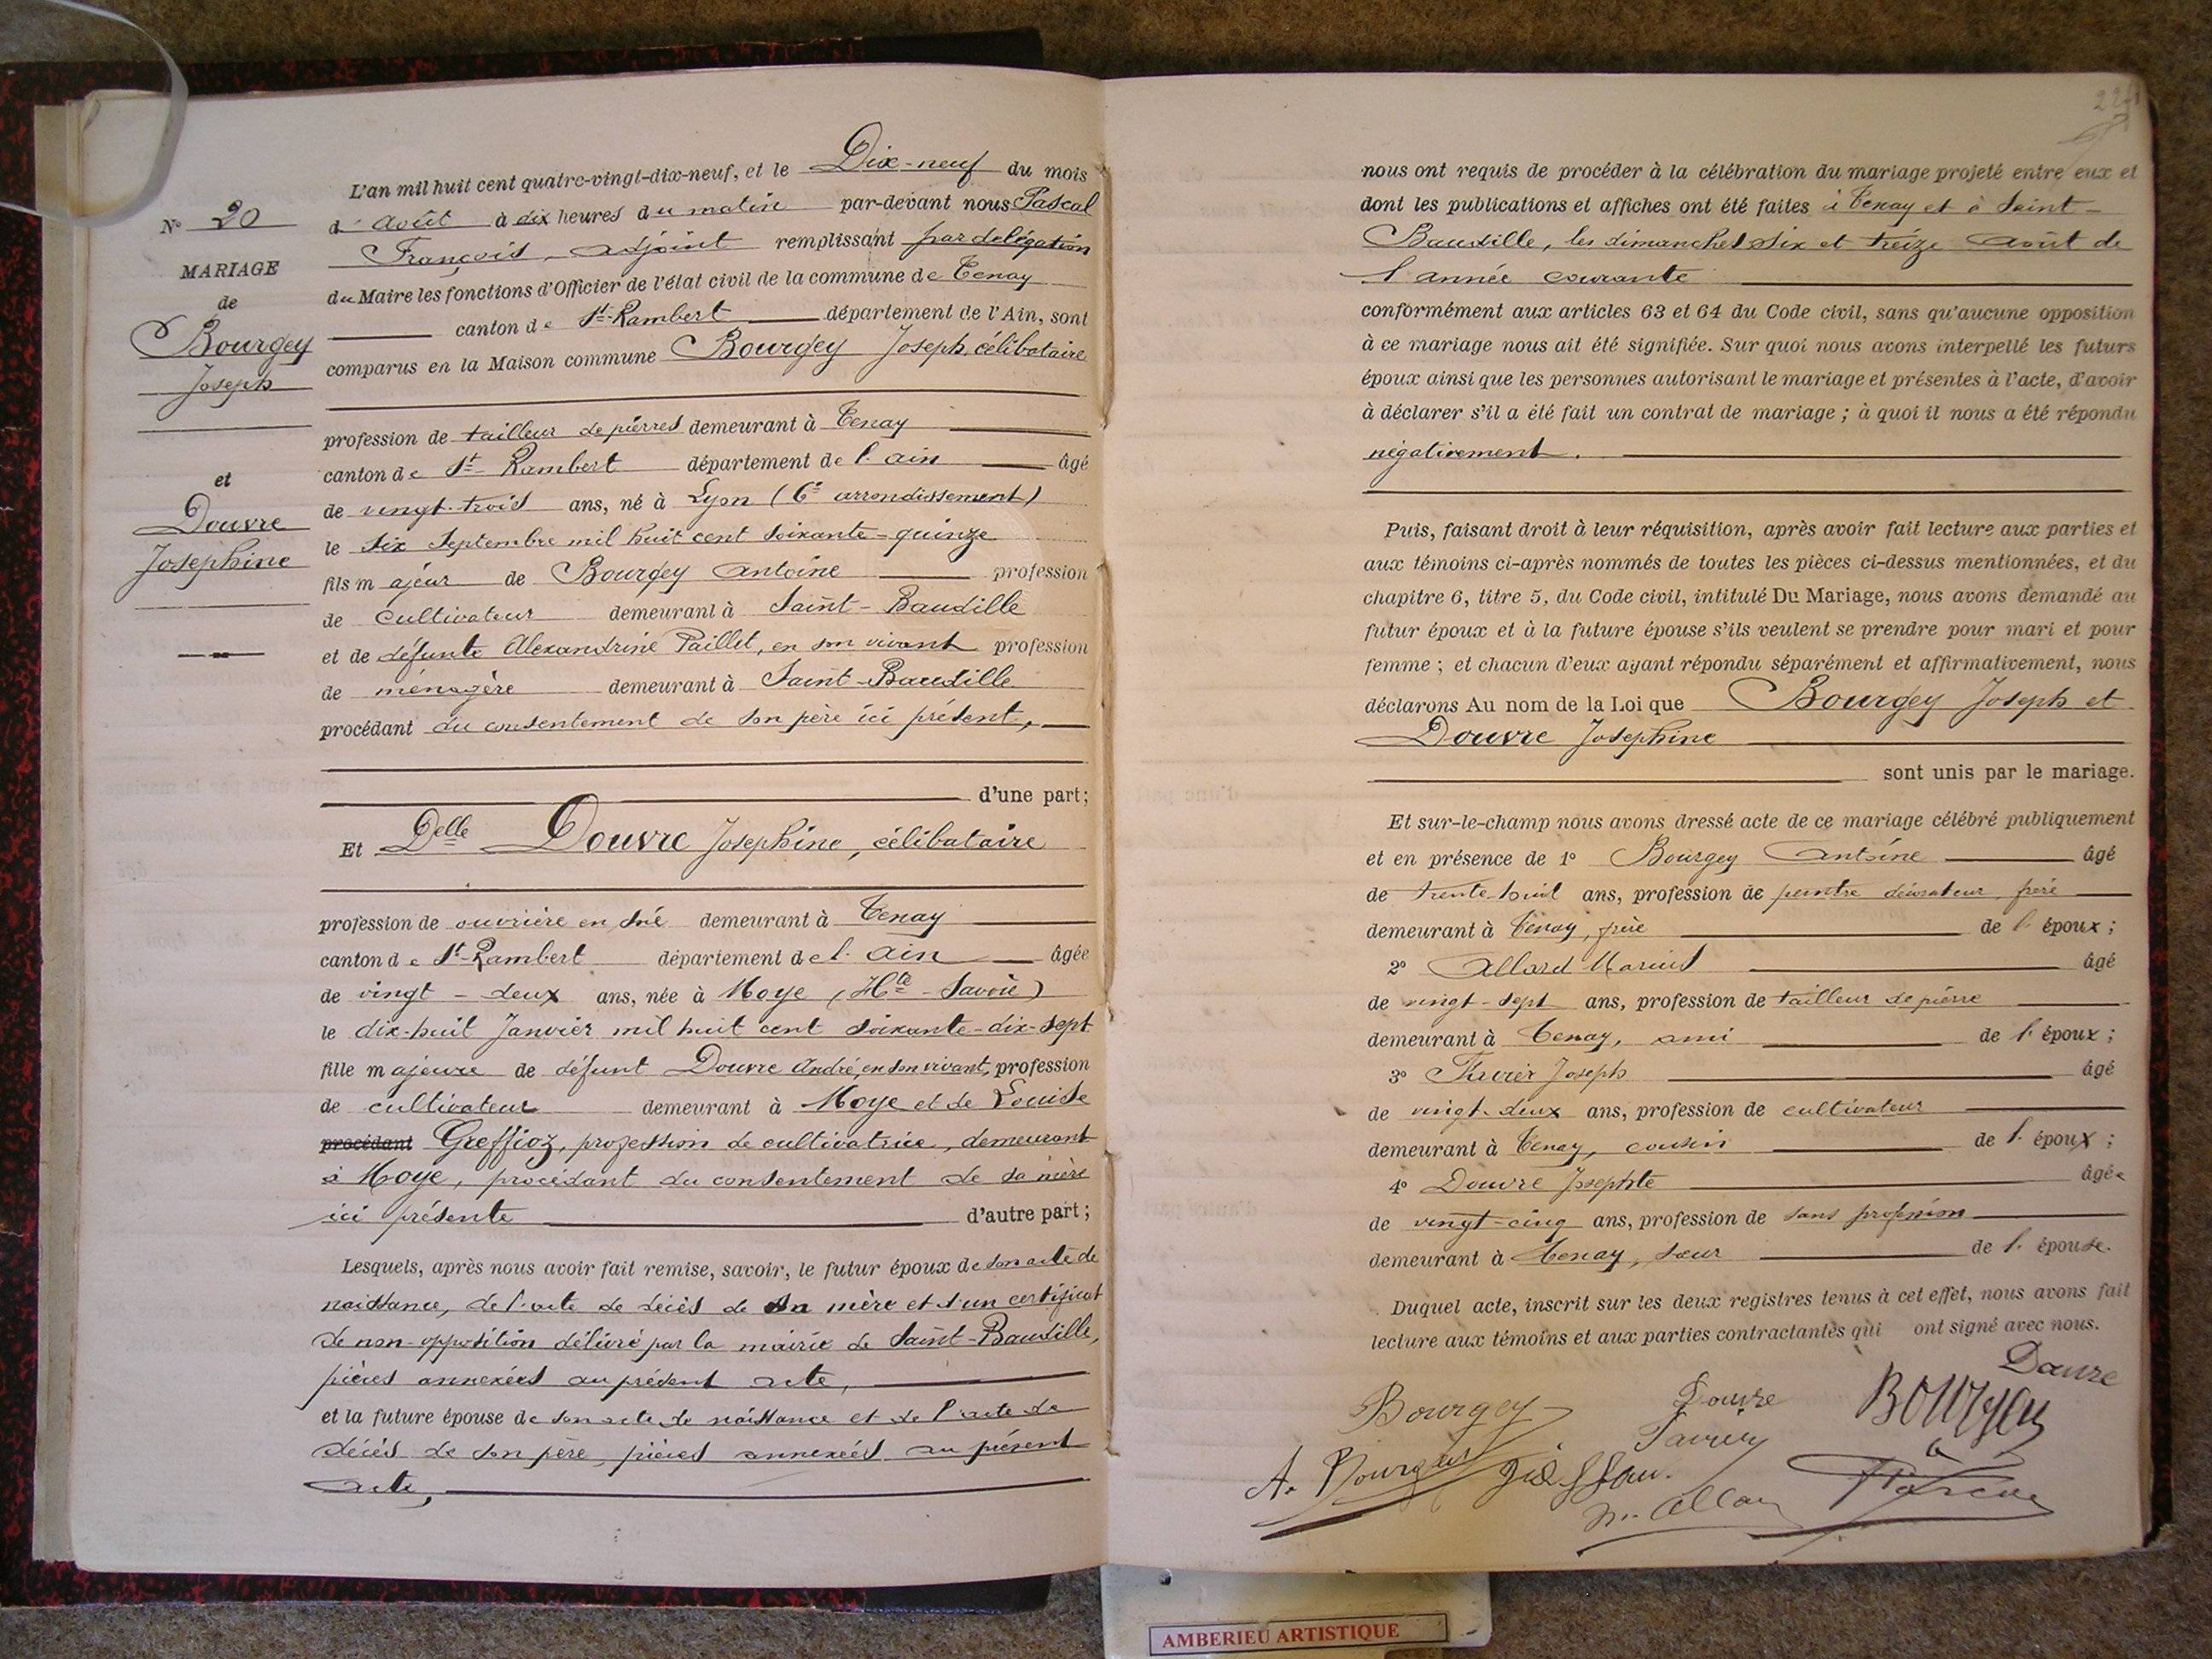 N° 20
MARIAGE
de
Bourgey
Joseph
et
Douvre
Josephine
L'an mil huit cent quatre-vingt-dix-neuf, et le Dix-neuf du mois
d'Août à dix heures du matin par-devant nous Pascal
François, adjoint remplissant par délégation
du Maire les fonctions d'Officier de l'état civil de la commune de Tenay
canton de St-Rambert département de l'Ain, sont
comparus en la Maison commune Bourgey Joseph, célibataire
profession de tailleur de pierres demeurant à Tenay
canton de St-Rambert département de l'ain âgé
de vingt-trois ans, né à Lyon (6e arrondissement)
le six Septembre mil huit cent soixante-quinze
fils majeur de Bourgey Antoine profession
de cultivateur demeurant à Saint-Baudille
et de défunte Alexandrine Paillet, en son vivant profession
de ménagère demeurant à Saint-Baudille
procédant du consentement de son père ici présent,
d'une part;
Et Delle Douvre Josephine, célibataire
profession de ouvrière en soie demeurant à Tenay
canton de St-Rambert département de l'Ain âgée
de vingt-deux ans, née à Moye (Hte-Savoie)
le dix-huit Janvier mil huit cent soixante-dix-sept
fille majeure de défunt Douvre André, en son vivant, profession
de cultivateur demeurant à Moye et de Louise
procédant Greffioz, profession de cultivatrice, demeurant
à Moye, procédant du consentement de sa mère
ici présente d'autre part;
Lesquels, après nous avoir fait remise, savoir, le futur époux de son acte de
naissance, de l'acte de décès de sa mère et d'un certificat
de non-opposition délivré par la mairie de Saint-Baudille,
pièces annexées au présent acte,
et la future épouse de son acte de naissance et de l'acte de
décès de son père, pièces annexées au présent
acte,
nous ont requis de procéder à la célébration du mariage projeté entre eux et
dont les publications et affiches ont été faites à Tenay et à Saint-
Baudille, les dimanches six et treize Août de
l'année courante
conformément aux articles 63 et 64 du Code civil, sans qu'aucune opposition
à ce mariage nous ait été signifiée. Sur quoi nous avons interpellé les futurs
époux ainsi que les personnes autorisant le mariage et présentes à l'acte, d'avoir
à déclarer s'il a été fait un contrat de mariage; à quoi il nous a été répondu
négativement.
Puis, faisant droit à leur réquisition, après avoir fait lecture aux parties et
aux témoins ci-après nommés de toutes les pièces ci-dessus mentionnées, et du
chapitre 6, titre 5, du Code civil, intitulé Du Mariage, nous avons demandé au
futur époux et à la future épouse s'ils veulent se prendre pour mari et pour
femme; et chacun d'eux ayant répondu séparément et affirmativement, nous
déclarons Au nom de la Loi que Bourgey Joseph et
Douvre Josephine
sont unis par le mariage.
Et sur-le-champ nous avons dressé acte de ce mariage célébré publiquement
et en présence de 1° Bourgey Antoine âgé
de trente-huit ans, profession de peintre décorateur, frère
demeurant à Tenay, frère de l'époux;
2° Allard Marius âgé
de vingt-sept ans, profession de tailleur de pierre
demeurant à Tenay, ami de l'époux;
3° Joseph âgé
de vingt-deux ans, profession de cultivateur
demeurant à Tenay, cousin de l'époux;
4° Douvre Josephte âgée
de vingt-cinq ans, profession de sans profession
demeurant à Tenay, sœur de l'épouse.
Duquel acte, inscrit sur les deux registres tenus à cet effet, nous avons fait
lecture aux témoins et aux parties contractantes qui ont signé avec nous.
Bourgey
Douvre
AMBERIEU ARTISTIQUE